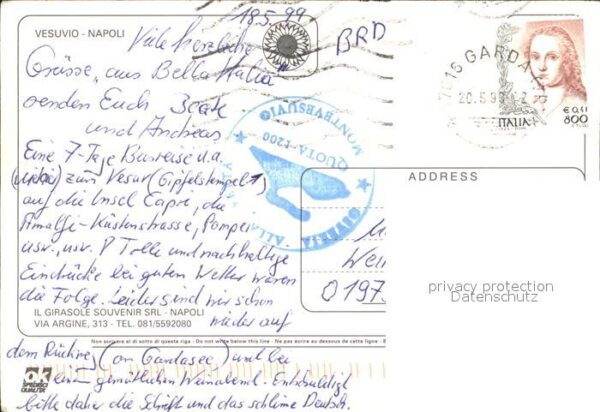 18.5.99
VESUVIO - NAPOLI
Viele herzliche
BRD
Grüsse, aus Bella Italia
senden Euch Beate
und Andreas
Eine 7-Tage Busreise u.a.
zum Vesuv (Gipfelstempel ↑)
auf die Insel Capri, die
Amalfi-Küstenstrasse, Pompei
usw., usw. Tolle und nachhaltige
Eindrücke bei gutem Wetter waren
die Folge. Leider sind wir schon
wieder auf
IL GIRASOLE SOUVENIR SRL - NAPOLI
VIA ARGINE, 313 - TEL. 081/5592080
Non scrivere al di sotto di questa riga - Do not write below this line - Ne pas écrire au dessous de cette ligne
dem Rückweg (am Gardasee) und bei
einem gemütlichen Weinabend. Entschuldigt
bitte daher die Schrift und das schlimme Deutsch.
ok
SPEDIRCI
QUALITÀ
MONTE VESUVIO
QUOTA 1200
GARDA
20.5.99
€ 0,41
800
ITALIA
ADDRESS
We
O 197
privacy protection
Datenschutz